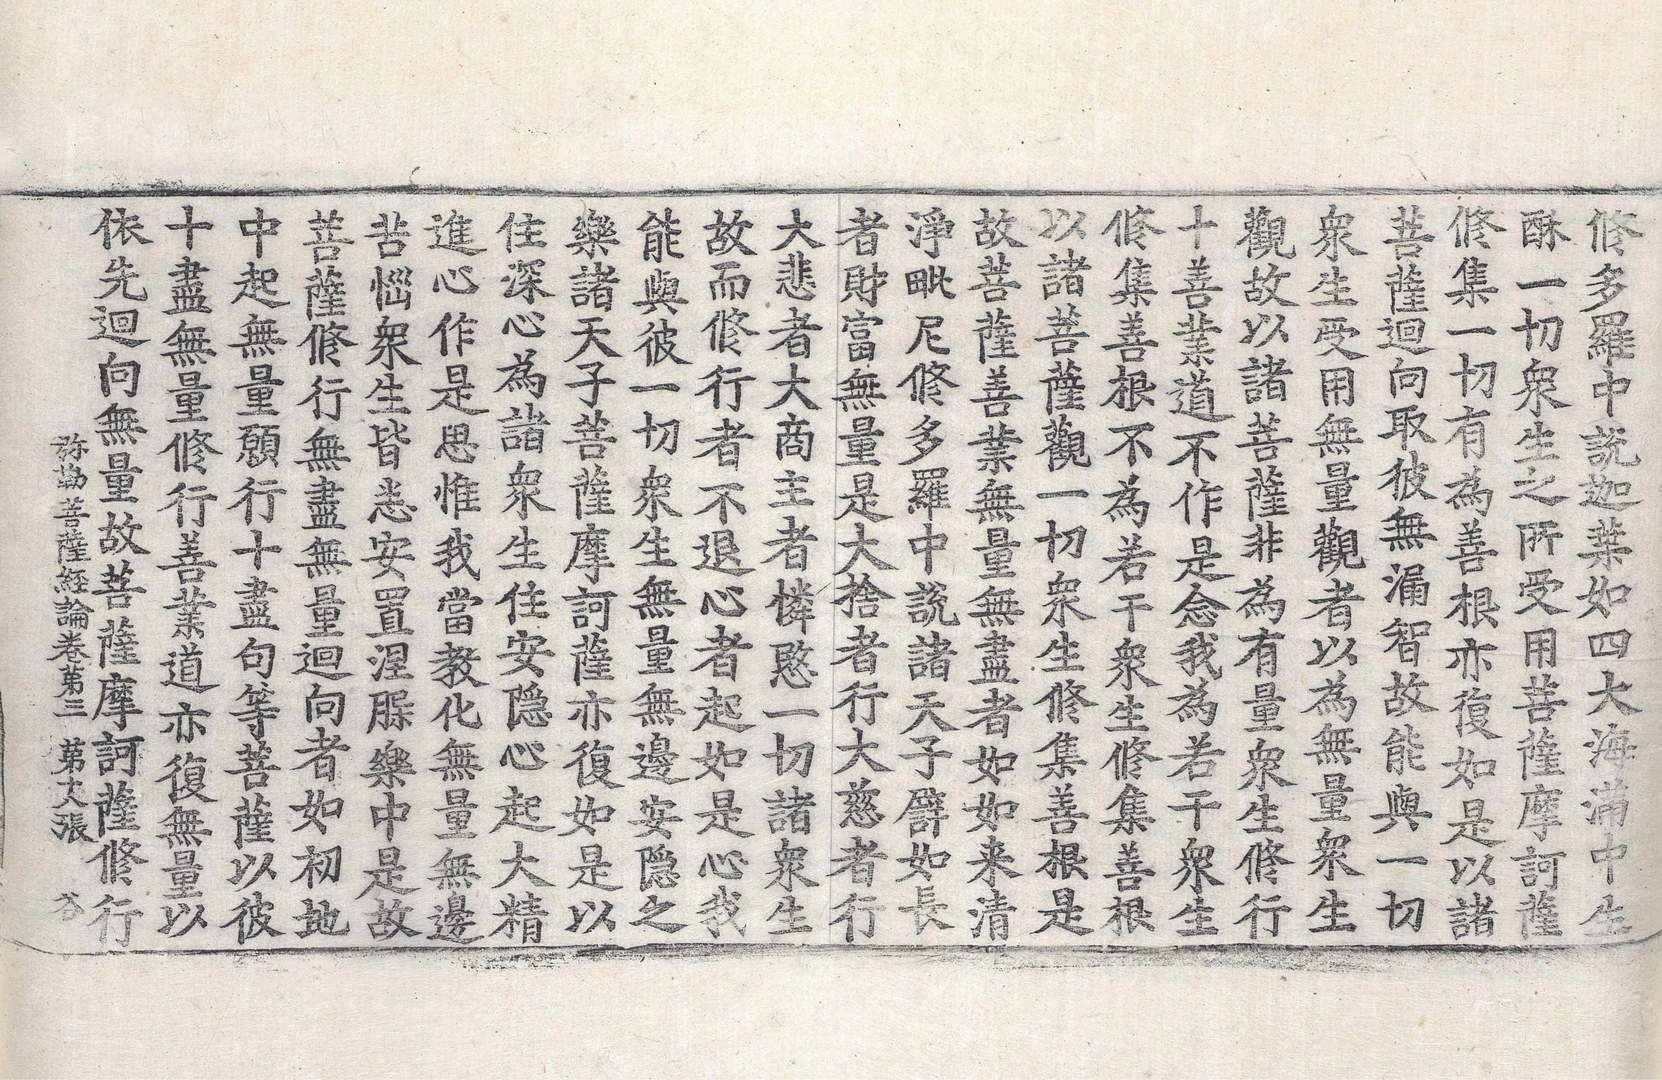 修多羅中說迦葉如四大海滿中生
酥一切衆生之所受用菩薩摩訶薩
修集一切有為善根亦復如是以諸
菩薩迴向取彼無漏智故能與一切
衆生受用無量觀者以為無量衆生
觀故以諸菩薩非為有量衆生修行
十善業道不作是念我為若干衆生
修集善根不為若干衆生修集善根
以諸菩薩觀一切衆生修集善根是
故菩薩善業無量無盡者如如来清
淨毗尼修多羅中說諸天子譬如長
者財富無量是大捨者行大慈者行
大悲者大商主者憐愍一切諸衆生
故而修行者不退心者起如是心我
能與彼一切衆生無量無邊安隱之
樂諸天子菩薩摩訶薩亦復如是以
住深心為諸衆生住安隱心起大精
進心作是思惟我當教化無量無邊
苦惱衆生皆悉安置涅槃樂中是故
菩薩修行無盡無量迴向者如初地
中起無量願行十盡句等菩薩以彼
十盡無量修行善業道亦復無量以
依先迴向無量故菩薩摩訶薩修行
弥勒菩薩經論卷第三 第十八張 谷